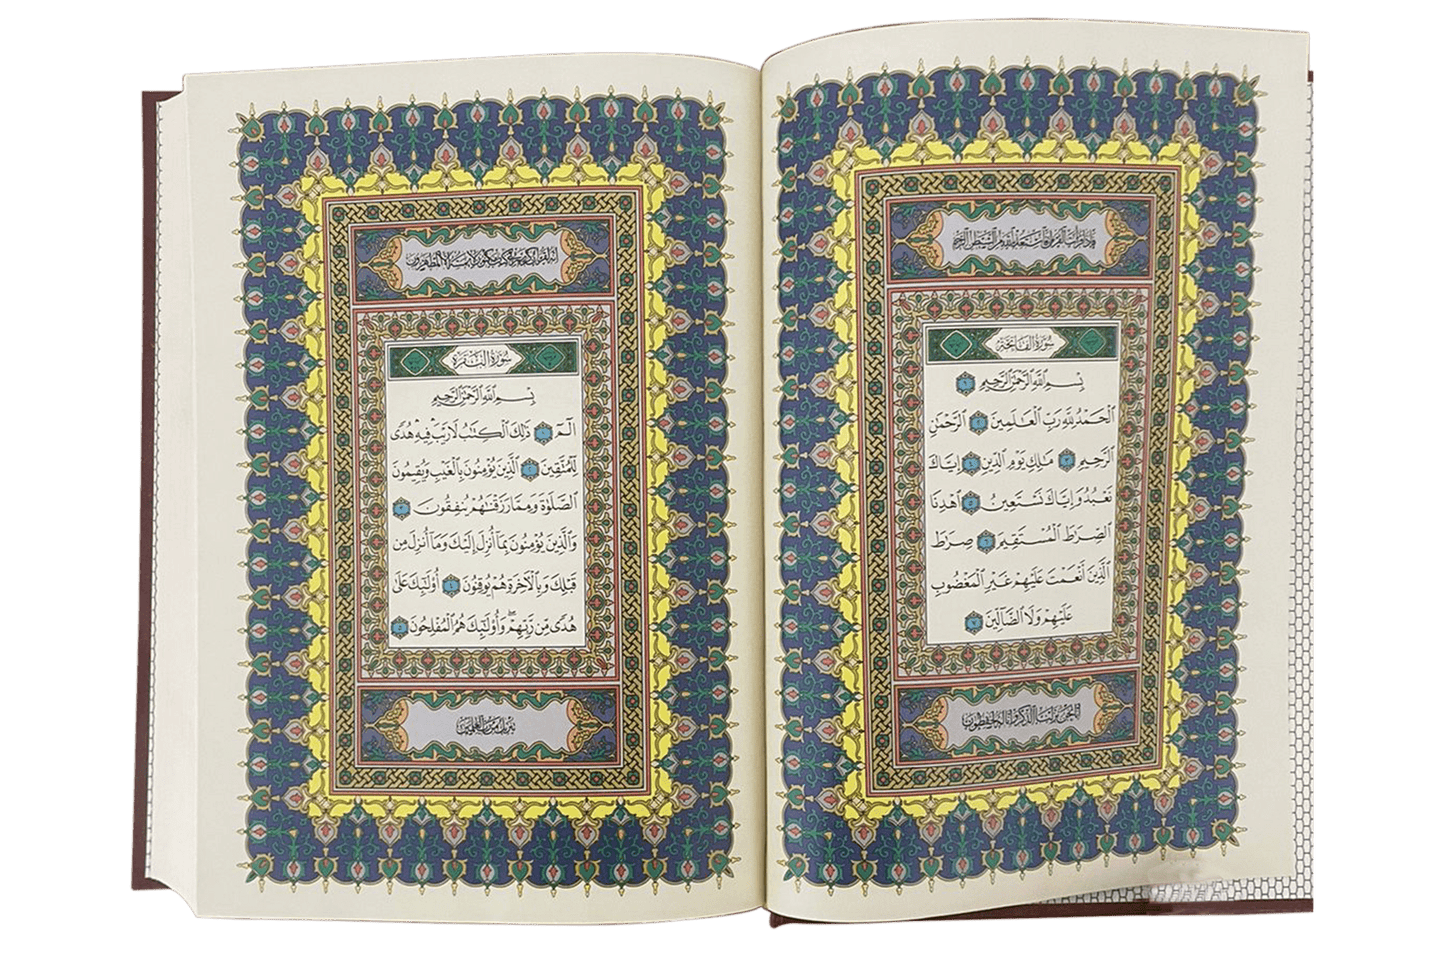 فإذا قرأت القرآن فاستعذ بالله من الشيطن الرجيم
سُورَةُ الفَاتِحَة
بِسْمِ ٱللَّهِ ٱلرَّحْمَٰنِ ٱلرَّحِيمِ ١
ٱلْحَمْدُ لِلَّهِ رَبِّ ٱلْعَٰلَمِينَ ٢ ٱلرَّحْمَٰنِ
ٱلرَّحِيمِ ٣ مَٰلِكِ يَوْمِ ٱلدِّينِ ٤ إِيَّاكَ
نَعْبُدُ وَإِيَّاكَ نَسْتَعِينُ ٥ ٱهْدِنَا
ٱلصِّرَٰطَ ٱلْمُسْتَقِيمَ ٦ صِرَٰطَ
ٱلَّذِينَ أَنْعَمْتَ عَلَيْهِمْ غَيْرِ ٱلْمَغْضُوبِ
عَلَيْهِمْ وَلَا ٱلضَّآلِّينَ ٧
إنا نحن نزلنا الذكر وإنا له لحفظون
إنه لقرآن كريم في كتب مكنون لا يمسه إلا المطهرون
سُورَةُ البَقَرَة
بِسْمِ ٱللَّهِ ٱلرَّحْمَٰنِ ٱلرَّحِيمِ
الٓمٓ ١ ذَٰلِكَ ٱلْكِتَٰبُ لَا رَيْبَ فِيهِ هُدًى
لِّلْمُتَّقِينَ ٢ ٱلَّذِينَ يُؤْمِنُونَ بِٱلْغَيْبِ وَيُقِيمُونَ
ٱلصَّلَوٰةَ وَمِمَّا رَزَقْنَٰهُمْ يُنفِقُونَ ٣
وَٱلَّذِينَ يُؤْمِنُونَ بِمَآ أُنزِلَ إِلَيْكَ وَمَآ أُنزِلَ مِن
قَبْلِكَ وَبِٱلْءَاخِرَةِ هُمْ يُوقِنُونَ ٤ أُو۟لَٰٓئِكَ عَلَىٰ
هُدًى مِّن رَّبِّهِمْ ۖ وَأُو۟لَٰٓئِكَ هُمُ ٱلْمُفْلِحُونَ ٥
تنزيل من رب العلمين